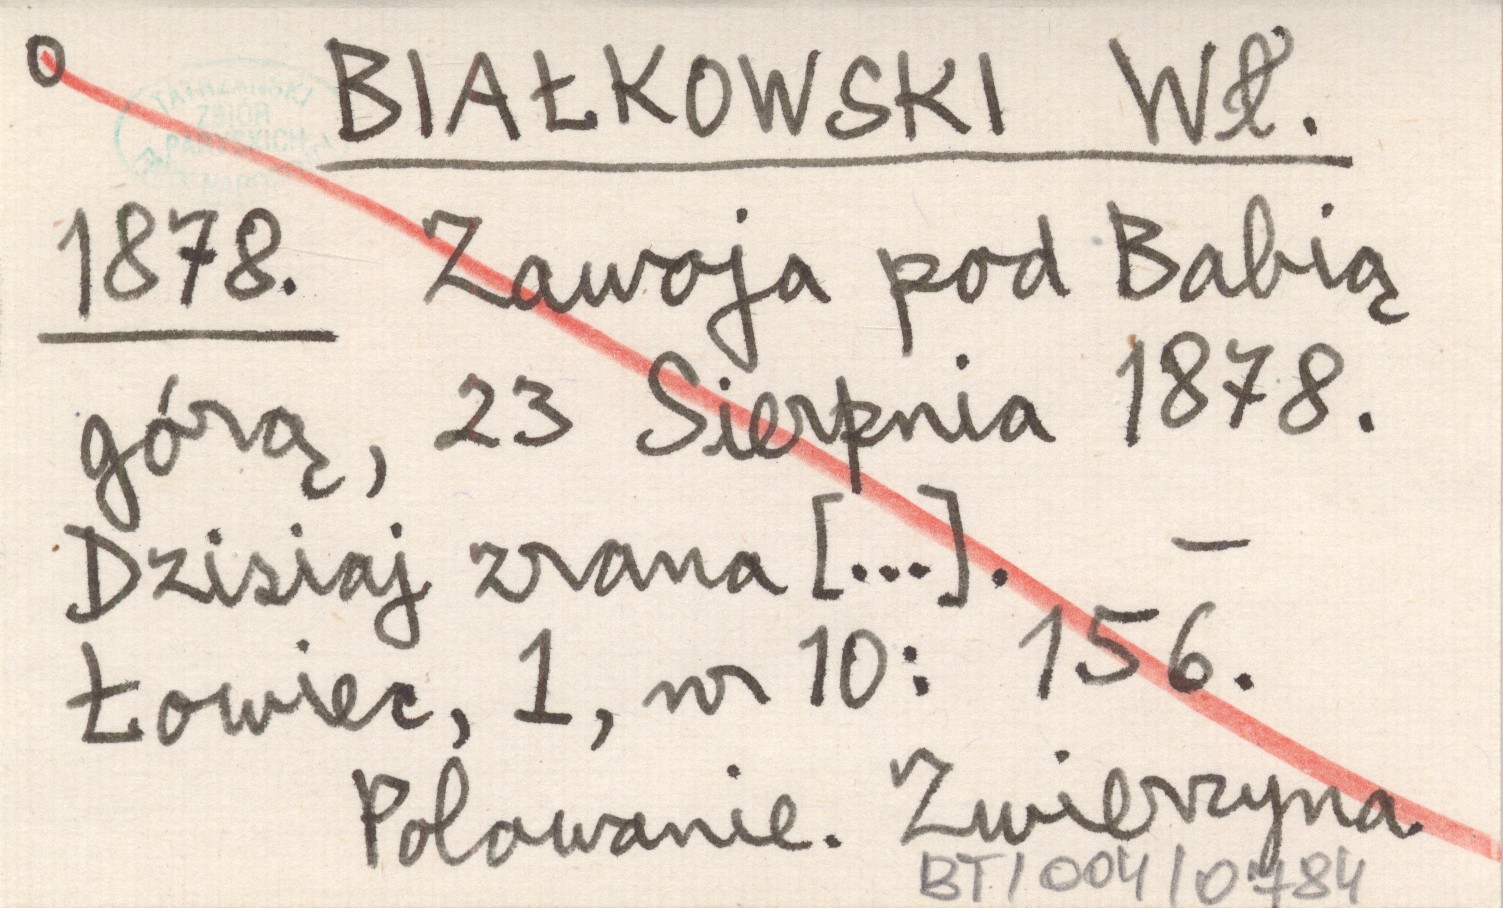 O BIAŁKOWSKI Wł.
TATRZAŃSKI
ZBIÓR
PARYSKICH
1878. Zawoja pod Babią
górą, 23 Sierpnia 1878.
Dzisiaj zrana [...]. —
Łowiec, 1, nr 10: 156.
Polowanie. Zwierzyna.
BT/004/0784